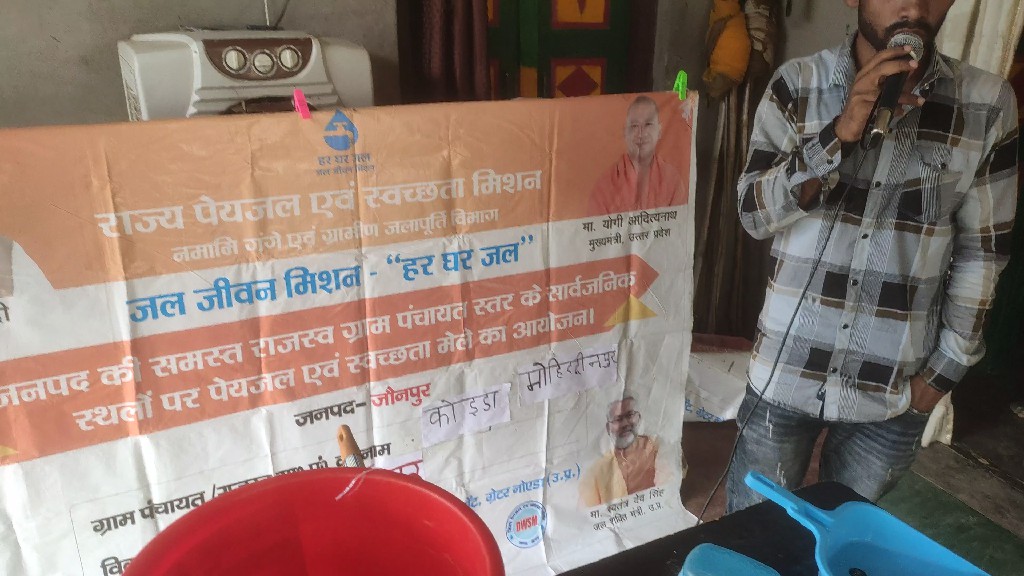 हर घर जल
जल जीवन मिशन
राज्य पेयजल एवं स्वच्छता मिशन
नमामि गंगे एवं ग्रामीण जलापूर्ति विभाग
मा. योगी आदित्यनाथ
मुख्यमंत्री, उत्तर प्रदेश
जल जीवन मिशन - “हर घर जल”
जनपद की समस्त राजस्व ग्राम पंचायत स्तर के सार्वजनिक
स्थलों पर पेयजल एवं स्वच्छता मेले का आयोजन।
जनपद– जौनपुर
कोइडा
ग्राम पंचायत
ग्रेटर नोएडा (उ.प्र.)
DWSM
मा. स्वतंत्र देव सिंह
जल शक्ति मंत्री, उ.प्र.